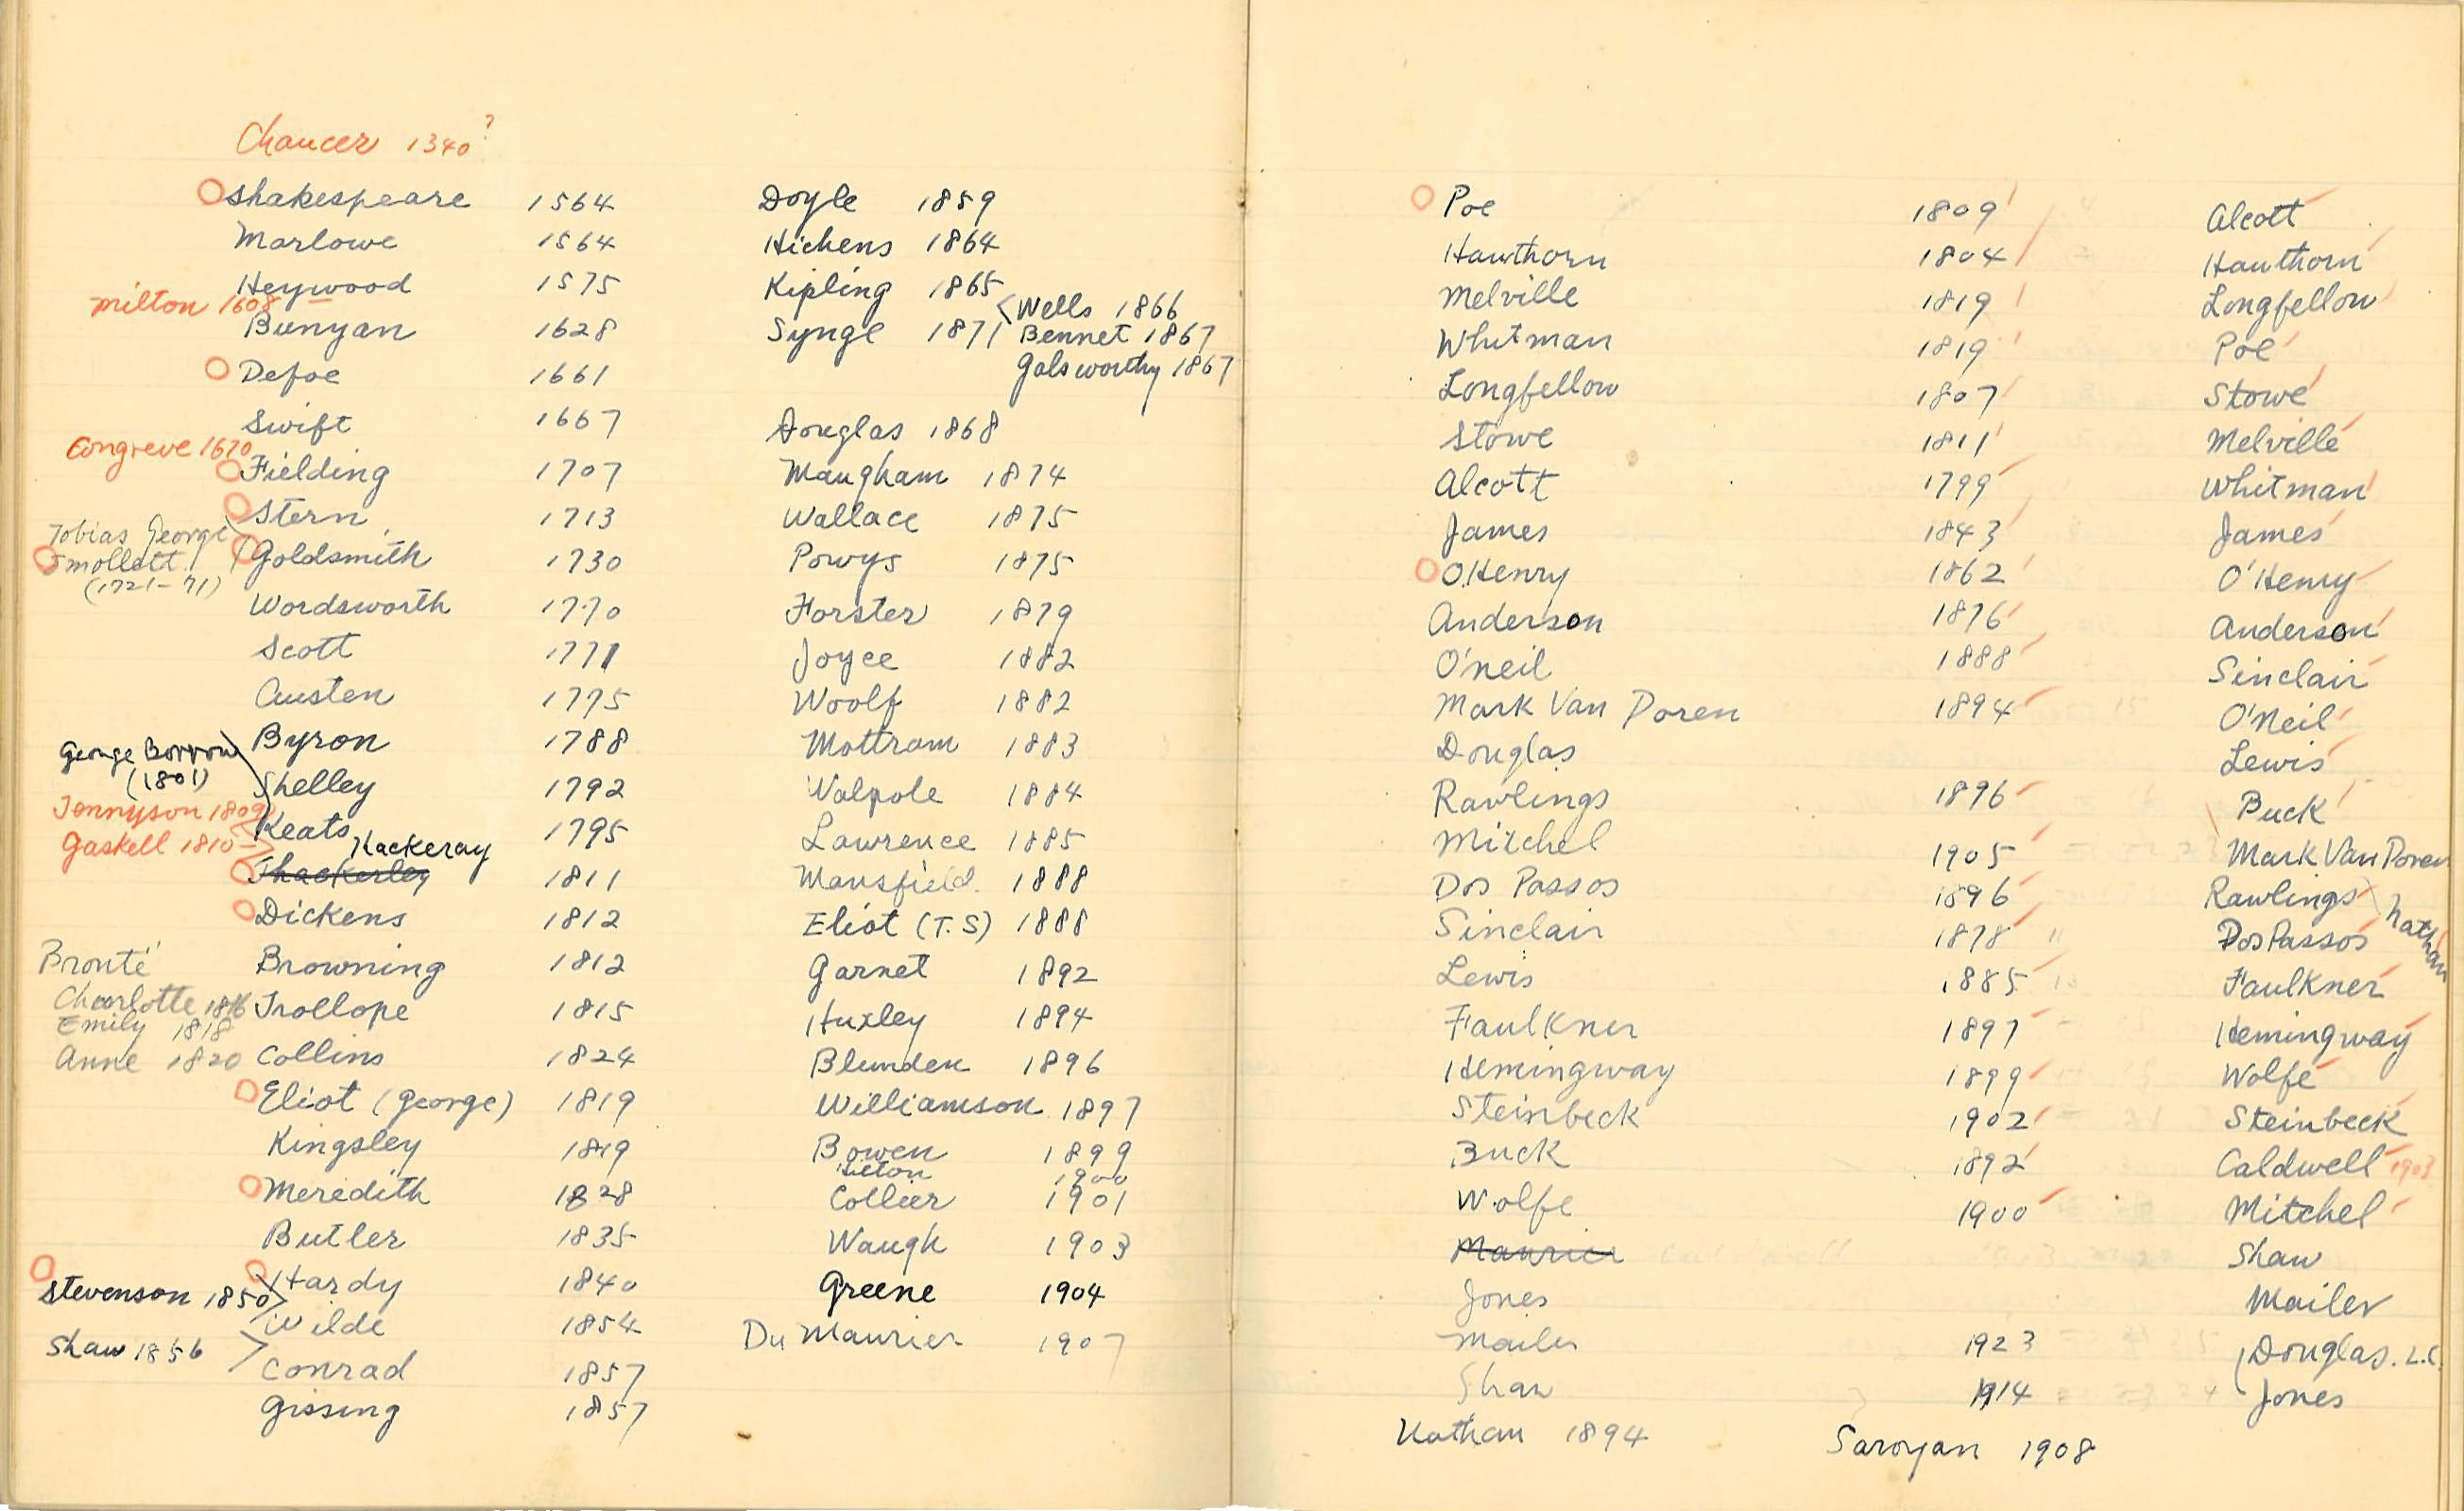 Chaucer 1340?
Shakespeare 1564
Marlowe 1564
Heywood 1575
Milton 1608
Bunyan 1628
Defoe 1661
Swift 1667
Congreve 1670
Fielding 1707
Stern 1713
Tobias George
Smollett
(1721-71)
Goldsmith 1730
Wordsworth 1770
Scott 1771
Austen 1775
Byron 1788
George Borrow
(1801)
Shelley 1792
Tennyson 1809
Keats 1795
Gaskell 1810
Thackeray
Thackerley 1811
Dickens 1812
Browning 1812
Bronté
Charlotte 1816
Emily 1818
Anne 1820
Trollope 1815
Collins 1824
Eliot (George) 1819
Kingsley 1819
Meredith 1828
Butler 1835
Hardy 1840
Stevenson 1850
Wilde 1854
Shaw 1856
Conrad 1857
Gissing 1857
Doyle 1859
Hichens 1864
Kipling 1865
Wells 1866
Synge 1871
Bennet 1867
Galsworthy 1867
Douglas 1868
Maugham 1874
Wallace 1875
Powys 1875
Forster 1879
Joyce 1882
Woolf 1882
Mottram 1883
Walpole 1884
Lawrence 1885
Mansfield 1888
Eliot (T.S) 1888
Garnet 1892
Huxley 1894
Blunden 1896
Williamson 1897
Bowen 1899
1900
Collier 1901
Waugh 1903
Greene 1904
Du Maurier 1907
Poe 1809
Hawthorn 1804
Melville 1819
Whitman 1819
Longfellow 1807
Stowe 1811
Alcott 1799
James 1843
O.Henry 1862
Anderson 1876
O'neil 1888
Mark Van Doren 1894
Douglas
Rawlings 1896
Mitchel 1905
Dos Passos 1896
Sinclair 1878
Lewis 1885
Faulkner 1897
Hemingway 1899
Steinbeck 1902
Buck 1892
Wolfe 1900
Maurier
Jones
Mailer 1923
Shaw 1914
Nathan 1894
Saroyan 1908
Alcott
Hawthorn
Longfellow
Poe
Stowe
Melville
Whitman
James
O'Henry
Anderson
Sinclair
O'Neil
Lewis
Buck
Mark Van Doren
Rawlings
Nathan
Dos Passos
Faulkner
Hemingway
Wolfe
Steinbeck
Caldwell 1903
Mitchel
Shaw
Mailer
Douglas. L.C.
Jones